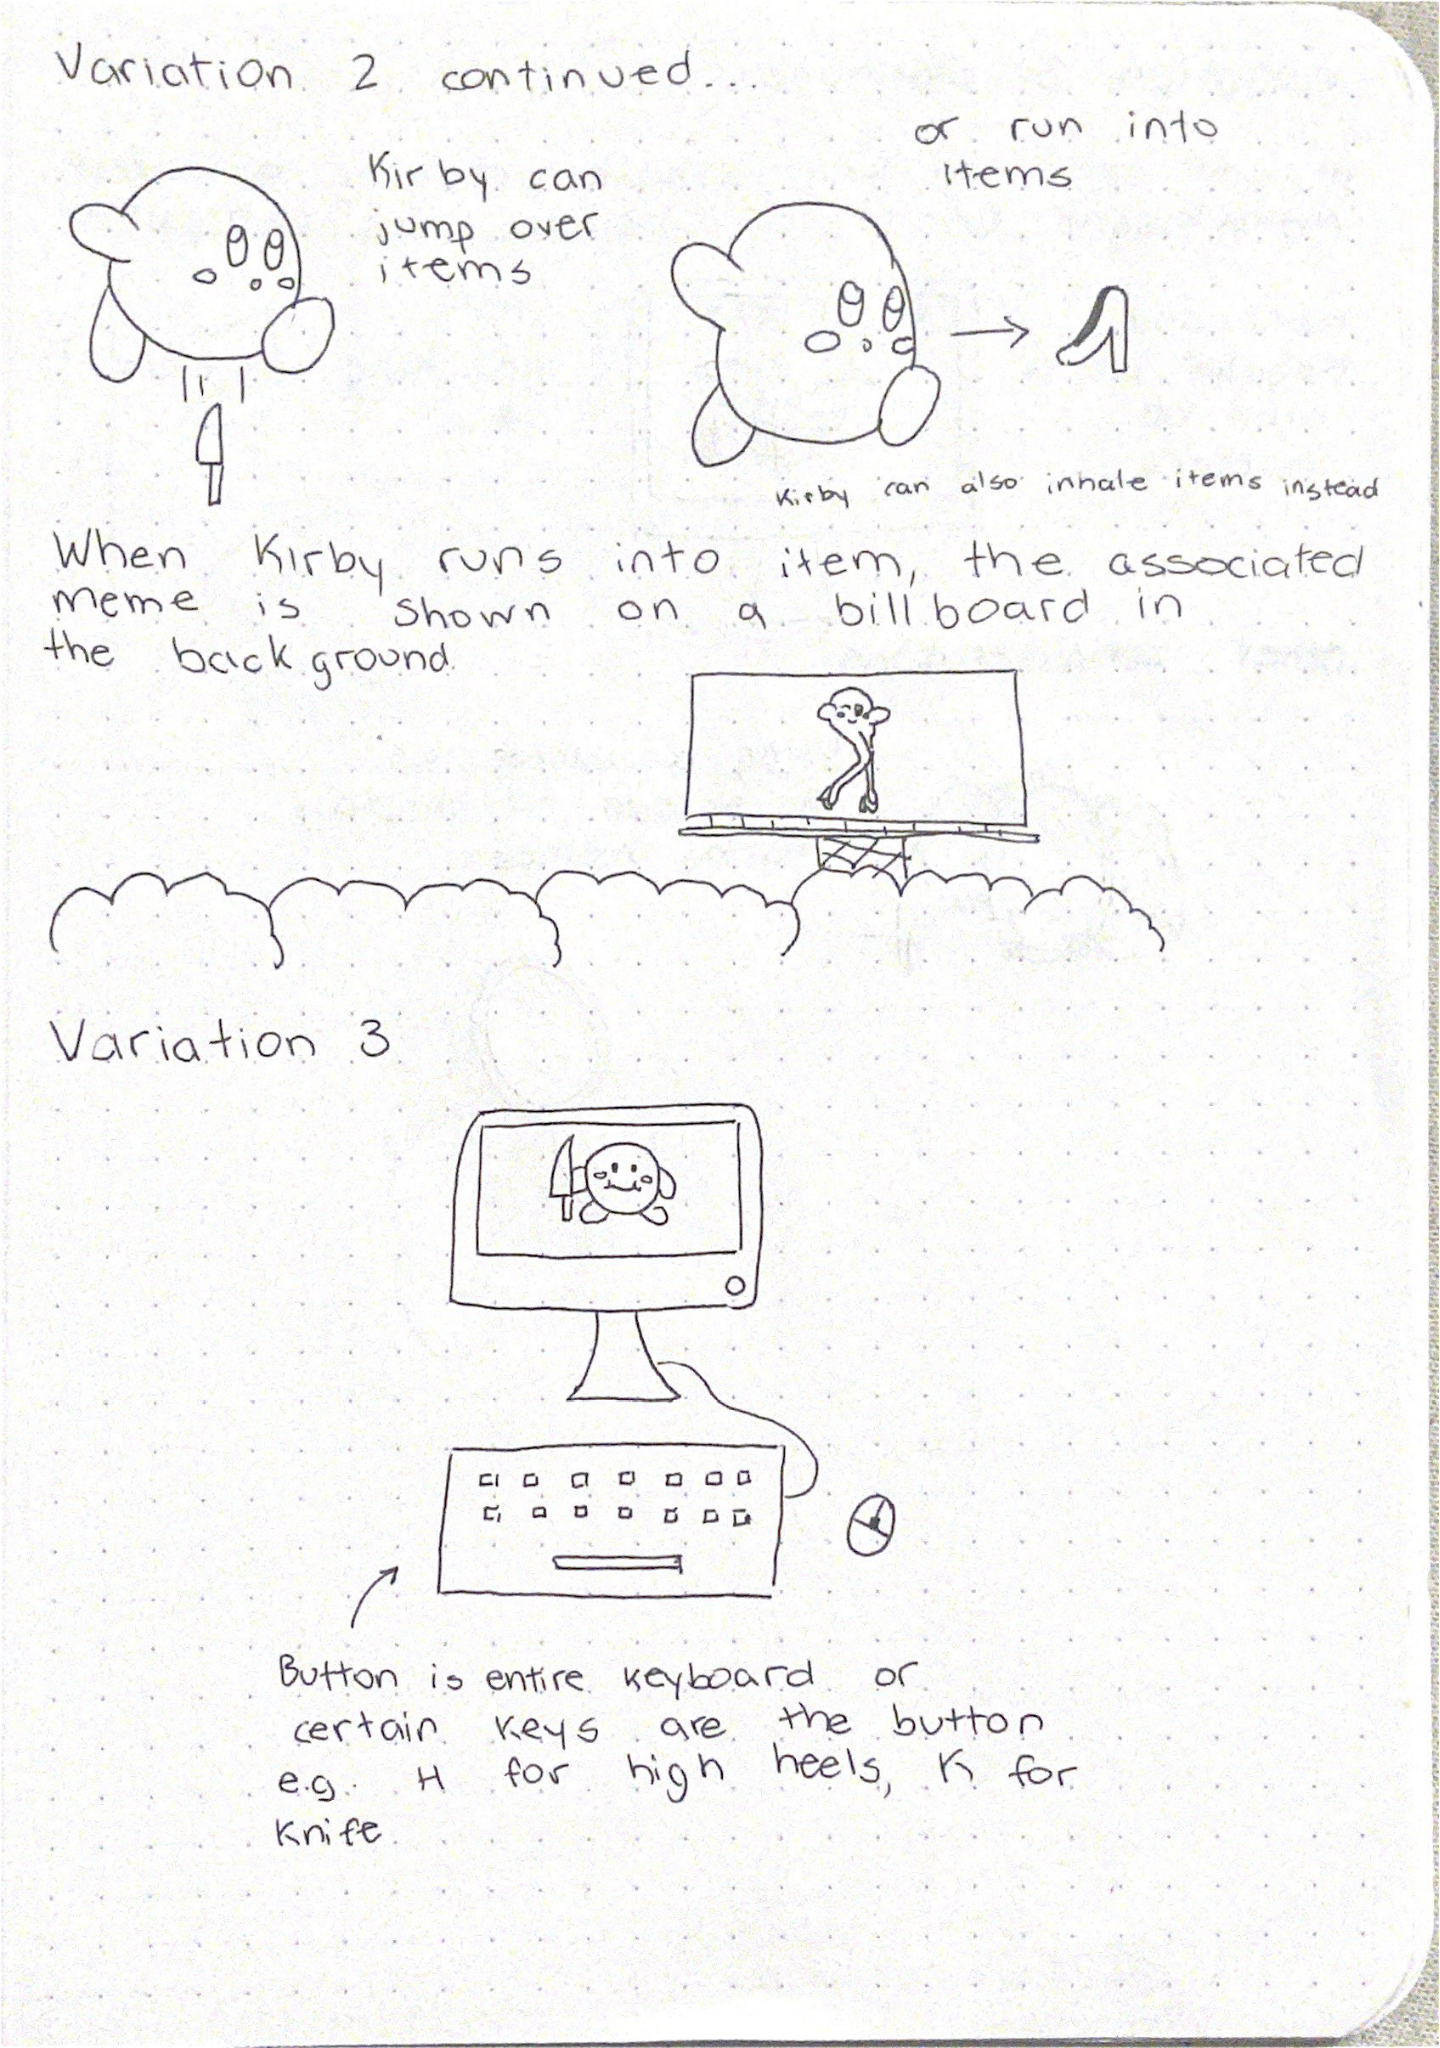 Variation 2 continued...
Kirby can
jump over
items
or run into
items
Kirby can also inhale items instead
When Kirby runs into item, the associated
meme is shown on a billboard in
the background.
Variation 3
Button is entire keyboard or
certain keys are the button
e.g. H for high heels, K for
Knife